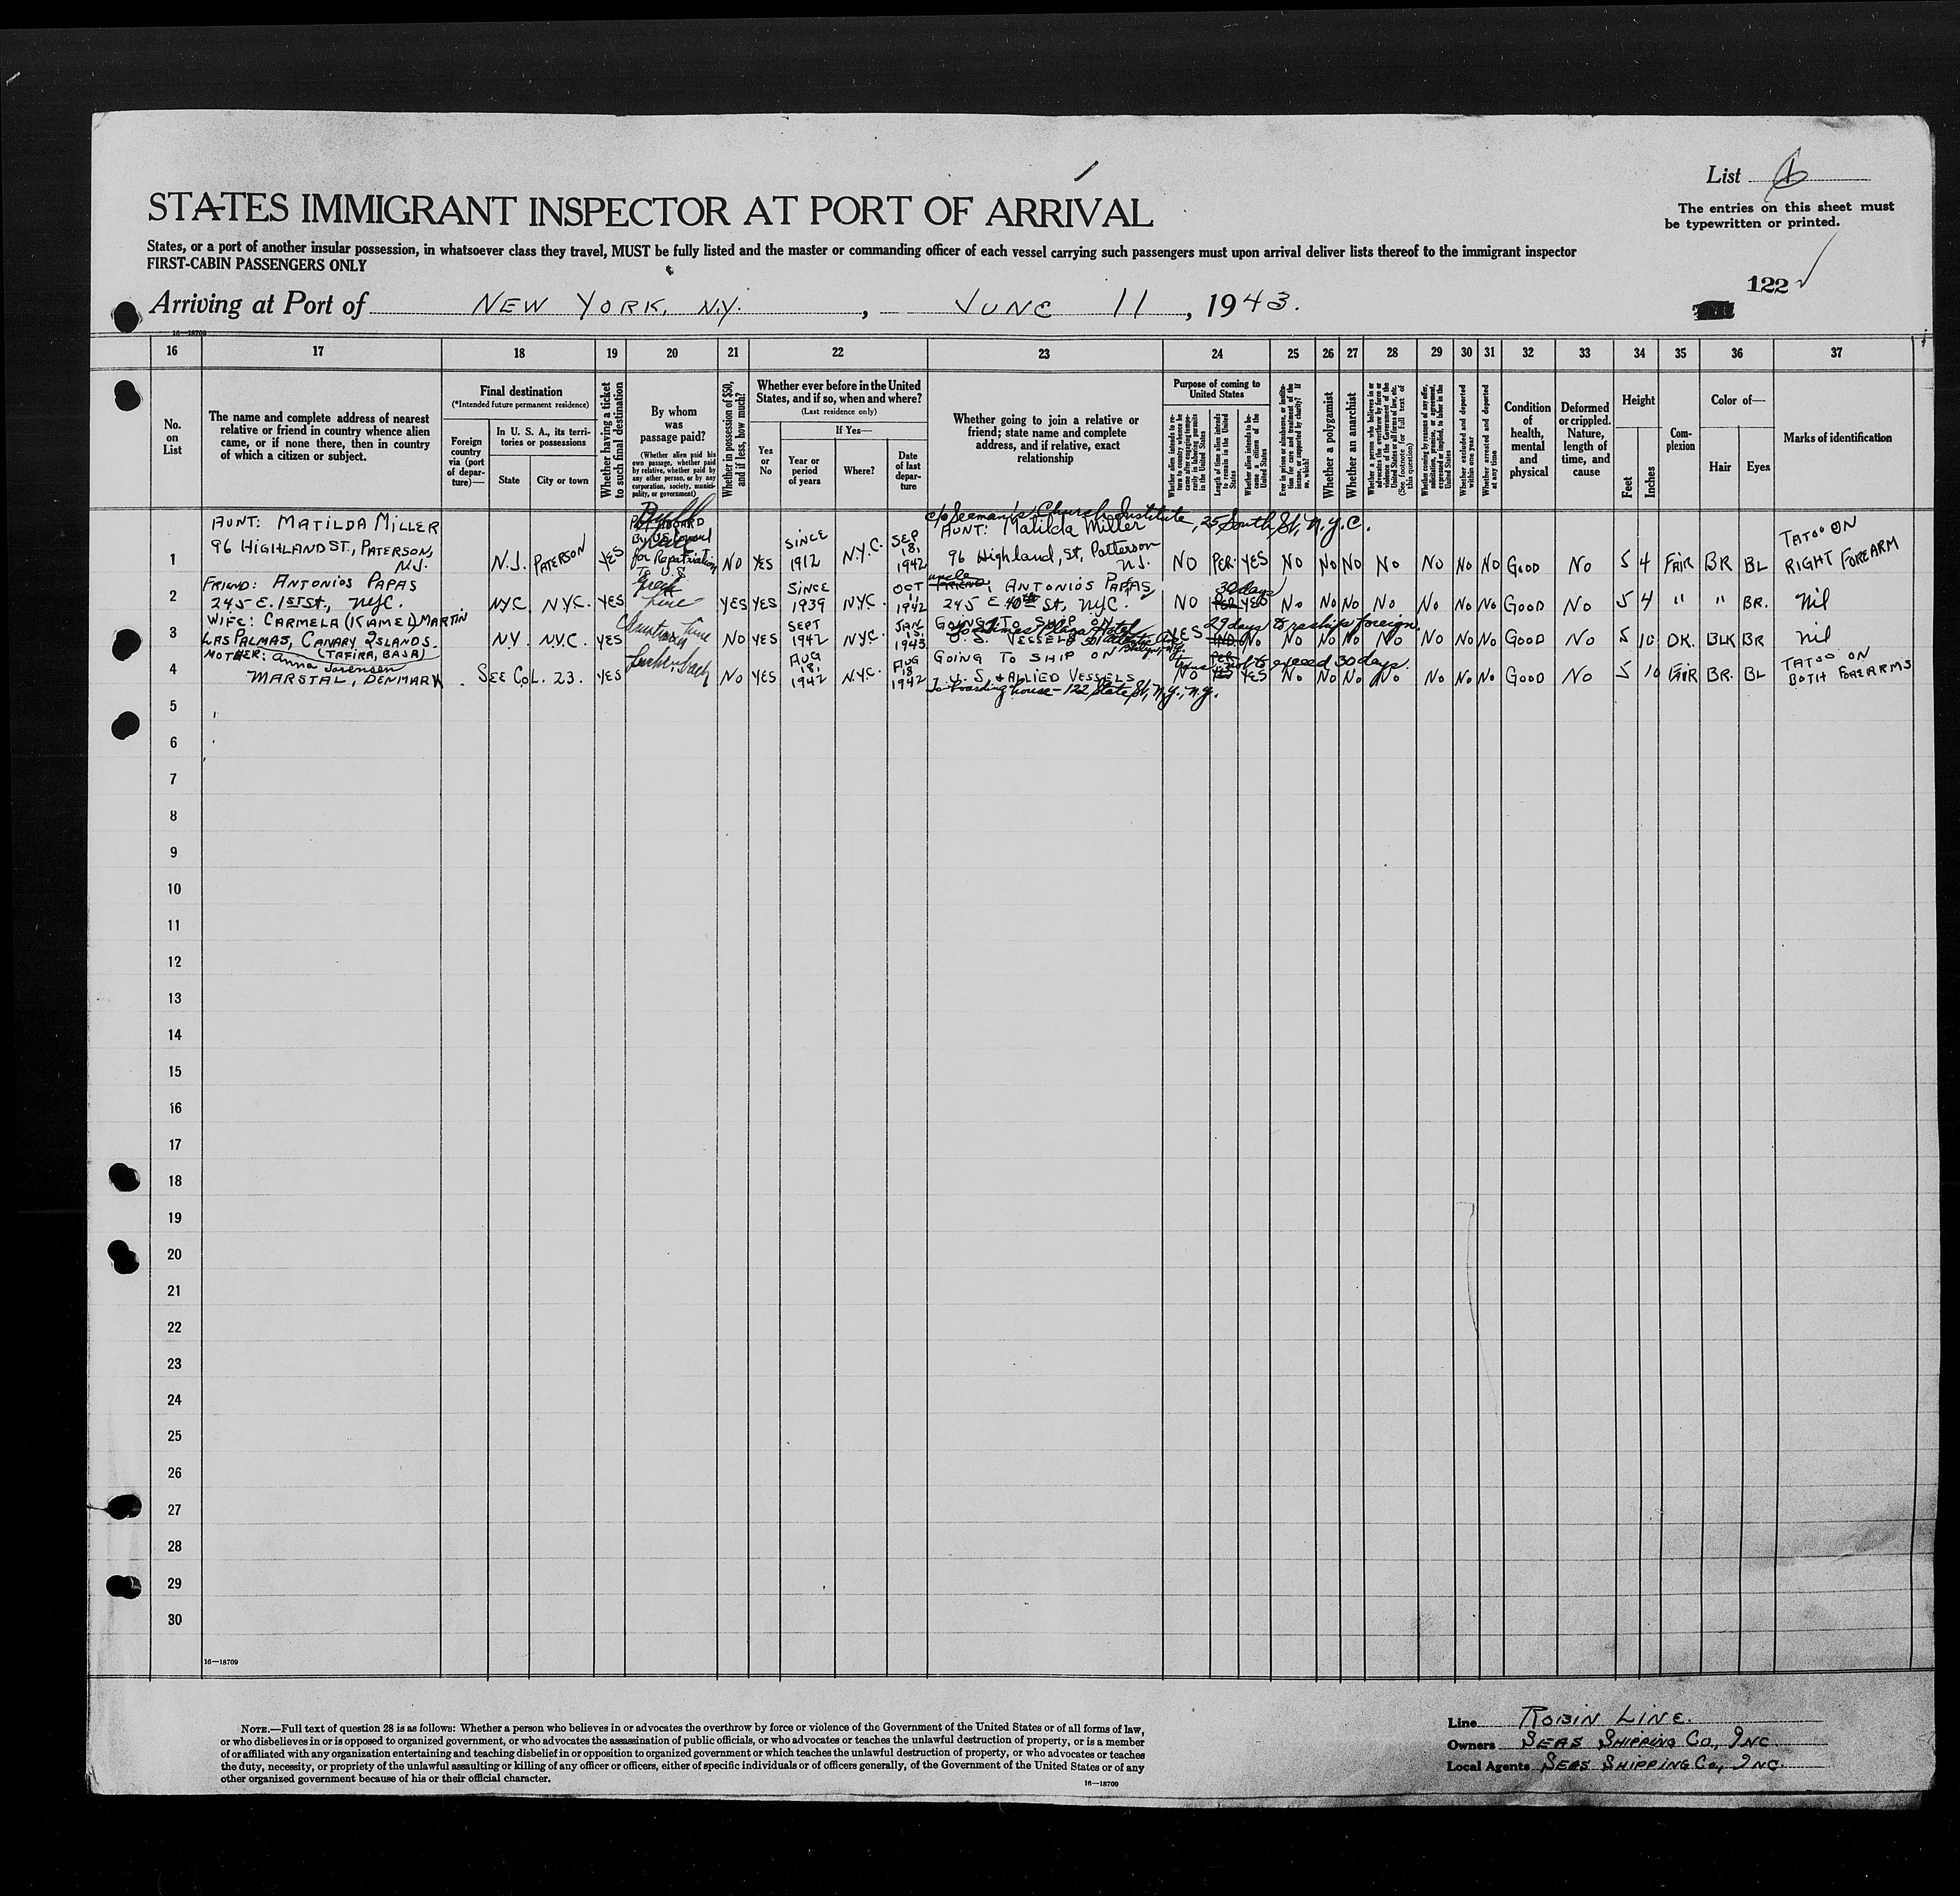 List 1
The entries on this sheet must
be typewritten or printed.
STATES IMMIGRANT INSPECTOR AT PORT OF ARRIVAL
States, or a port of another insular possession, in whatsoever class they travel, MUST be fully listed and the master or commanding officer of each vessel carrying such passengers must upon arrival deliver lists thereof to the immigrant inspector
FIRST-CABIN PASSENGERS ONLY
122
Arriving at Port of NEW YORK, N.Y. , JUNE 11 , 1943.
16—18709
16 17 18 19 20 21 22 23 24 25 26 27 28 29 30 31 32 33 34 35 36 37
No. on List
The name and complete address of nearest relative or friend in country whence alien came, or if none there, then in country of which a citizen or subject.
Final destination
(*Intended future permanent residence)
Foreign country via (port of departure)—
In U. S. A., its territories or possessions
State
City or town
Whether having a ticket to such final destination
By whom was passage paid?
(Whether alien paid his own passage, whether paid by relative, whether paid by any other person, or by any corporation, society, municipality, or government)
Whether in possession of $50, and if less, how much?
Whether ever before in the United States, and if so, when and where?
(Last residence only)
Yes or No
If Yes—
Year or period of years
Where?
Date of last departure
Whether going to join a relative or friend; state name and complete address, and if relative, exact relationship
Purpose of coming to United States
Whether alien intends to return to country whence he came after engaging temporarily in laboring pursuits in the United States
Length of time alien intends to remain in the United States
Whether alien intends to become a citizen of the United States
Ever in prison or almshouse, or institution for care and treatment of the insane, or supported by charity? If so, which?
Whether a polygamist
Whether an anarchist
Whether a person who believes in or advocates the overthrow by force or violence of the Government of the United States or all forms of law, etc. (See footnote for full text of this question)
Whether coming by reason of any offer, solicitation, promise, or agreement, expressed or implied, to labor in the United States
Whether excluded and deported within one year
Whether arrested and deported at any time
Condition of health, mental and physical
Deformed or crippled. Nature, length of time, and cause
Height
Feet
Inches
Complexion
Color of—
Hair
Eyes
Marks of identification
c/o Seeman's Church Institute, 25 South St., N.Y.C.
1 AUNT: MATILDA MILLER
96 HIGHLAND ST., PATERSON, N.J.
N.J. PATERSON YES
By US Consul
for Repatriation
To U.S.
NO YES SINCE 1912 N.Y.C. SEP 18, 1942
AUNT: Matilda Miller
96 Highland, St, Patterson N.J.
NO PER. YES No No No No No No No GOOD No 5 4 FAIR BR BL TATOO ON RIGHT FOREARM
2 FRIEND: ANTONIOS PAPAS
245 E. 1ST ST., NYC.
NYC N.Y.C. YES Greek Line YES YES SINCE 1939 N.Y.C. OCT 1, 1942
uncle FRIEND, ANTONIOS PAPAS
245 E 40th St, NYC.
NO 30 days PER YES No No No No No No No GOOD No 5 4 " " BR. Nil
3 WIFE: CARMELA (KAMEL) MARTIN
LAS PALMAS, CANARY ISLANDS.
(TAFIRA, BASA)
N.Y. N.Y.C. YES NO YES SEPT 1942 N.Y.C. JAN 15, 1943
GOING TO SHIP ON
U.S. VESSELS
YES 29 days to reship foreign.
NO No No No No No No No No GOOD No 5 10 DK. BLK BR Nil
4 MOTHER: Anna Sorensen
MARSTAL, DENMARK
SEE COL. 23. YES NO YES AUG 18, 1942 N.Y.C. AUG 18 1942
GOING TO SHIP ON
U. S. & ALLIED VESSELS
To boarding house - 122 State St, N.Y., N.Y.
not to exceed 30 days.
No YES No No No No No No No GOOD No 5 10 FAIR BR. BL TATOO ON BOTH FOREARMS
5
6
7
8
9
10
11
12
13
14
15
16
17
18
19
20
21
22
23
24
25
26
27
28
29
30
16—18709
NOTE.—Full text of question 28 is as follows: Whether a person who believes in or advocates the overthrow by force or violence of the Government of the United States or of all forms of law,
or who disbelieves in or is opposed to organized government, or who advocates the assassination of public officials, or who advocates or teaches the unlawful destruction of property, or is a member
of or affiliated with any organization entertaining and teaching disbelief in or opposition to organized government or which teaches the unlawful destruction of property, or who advocates or teaches
the duty, necessity, or propriety of the unlawful assaulting or killing of any officer or officers, either of specific individuals or of officers generally, of the Government of the United States or of any
other organized government because of his or their official character.
16—18709
Line ROBIN LINE.
Owners SEAS SHIPPING CO., INC
Local Agents SEAS SHIPPING Co, INC.